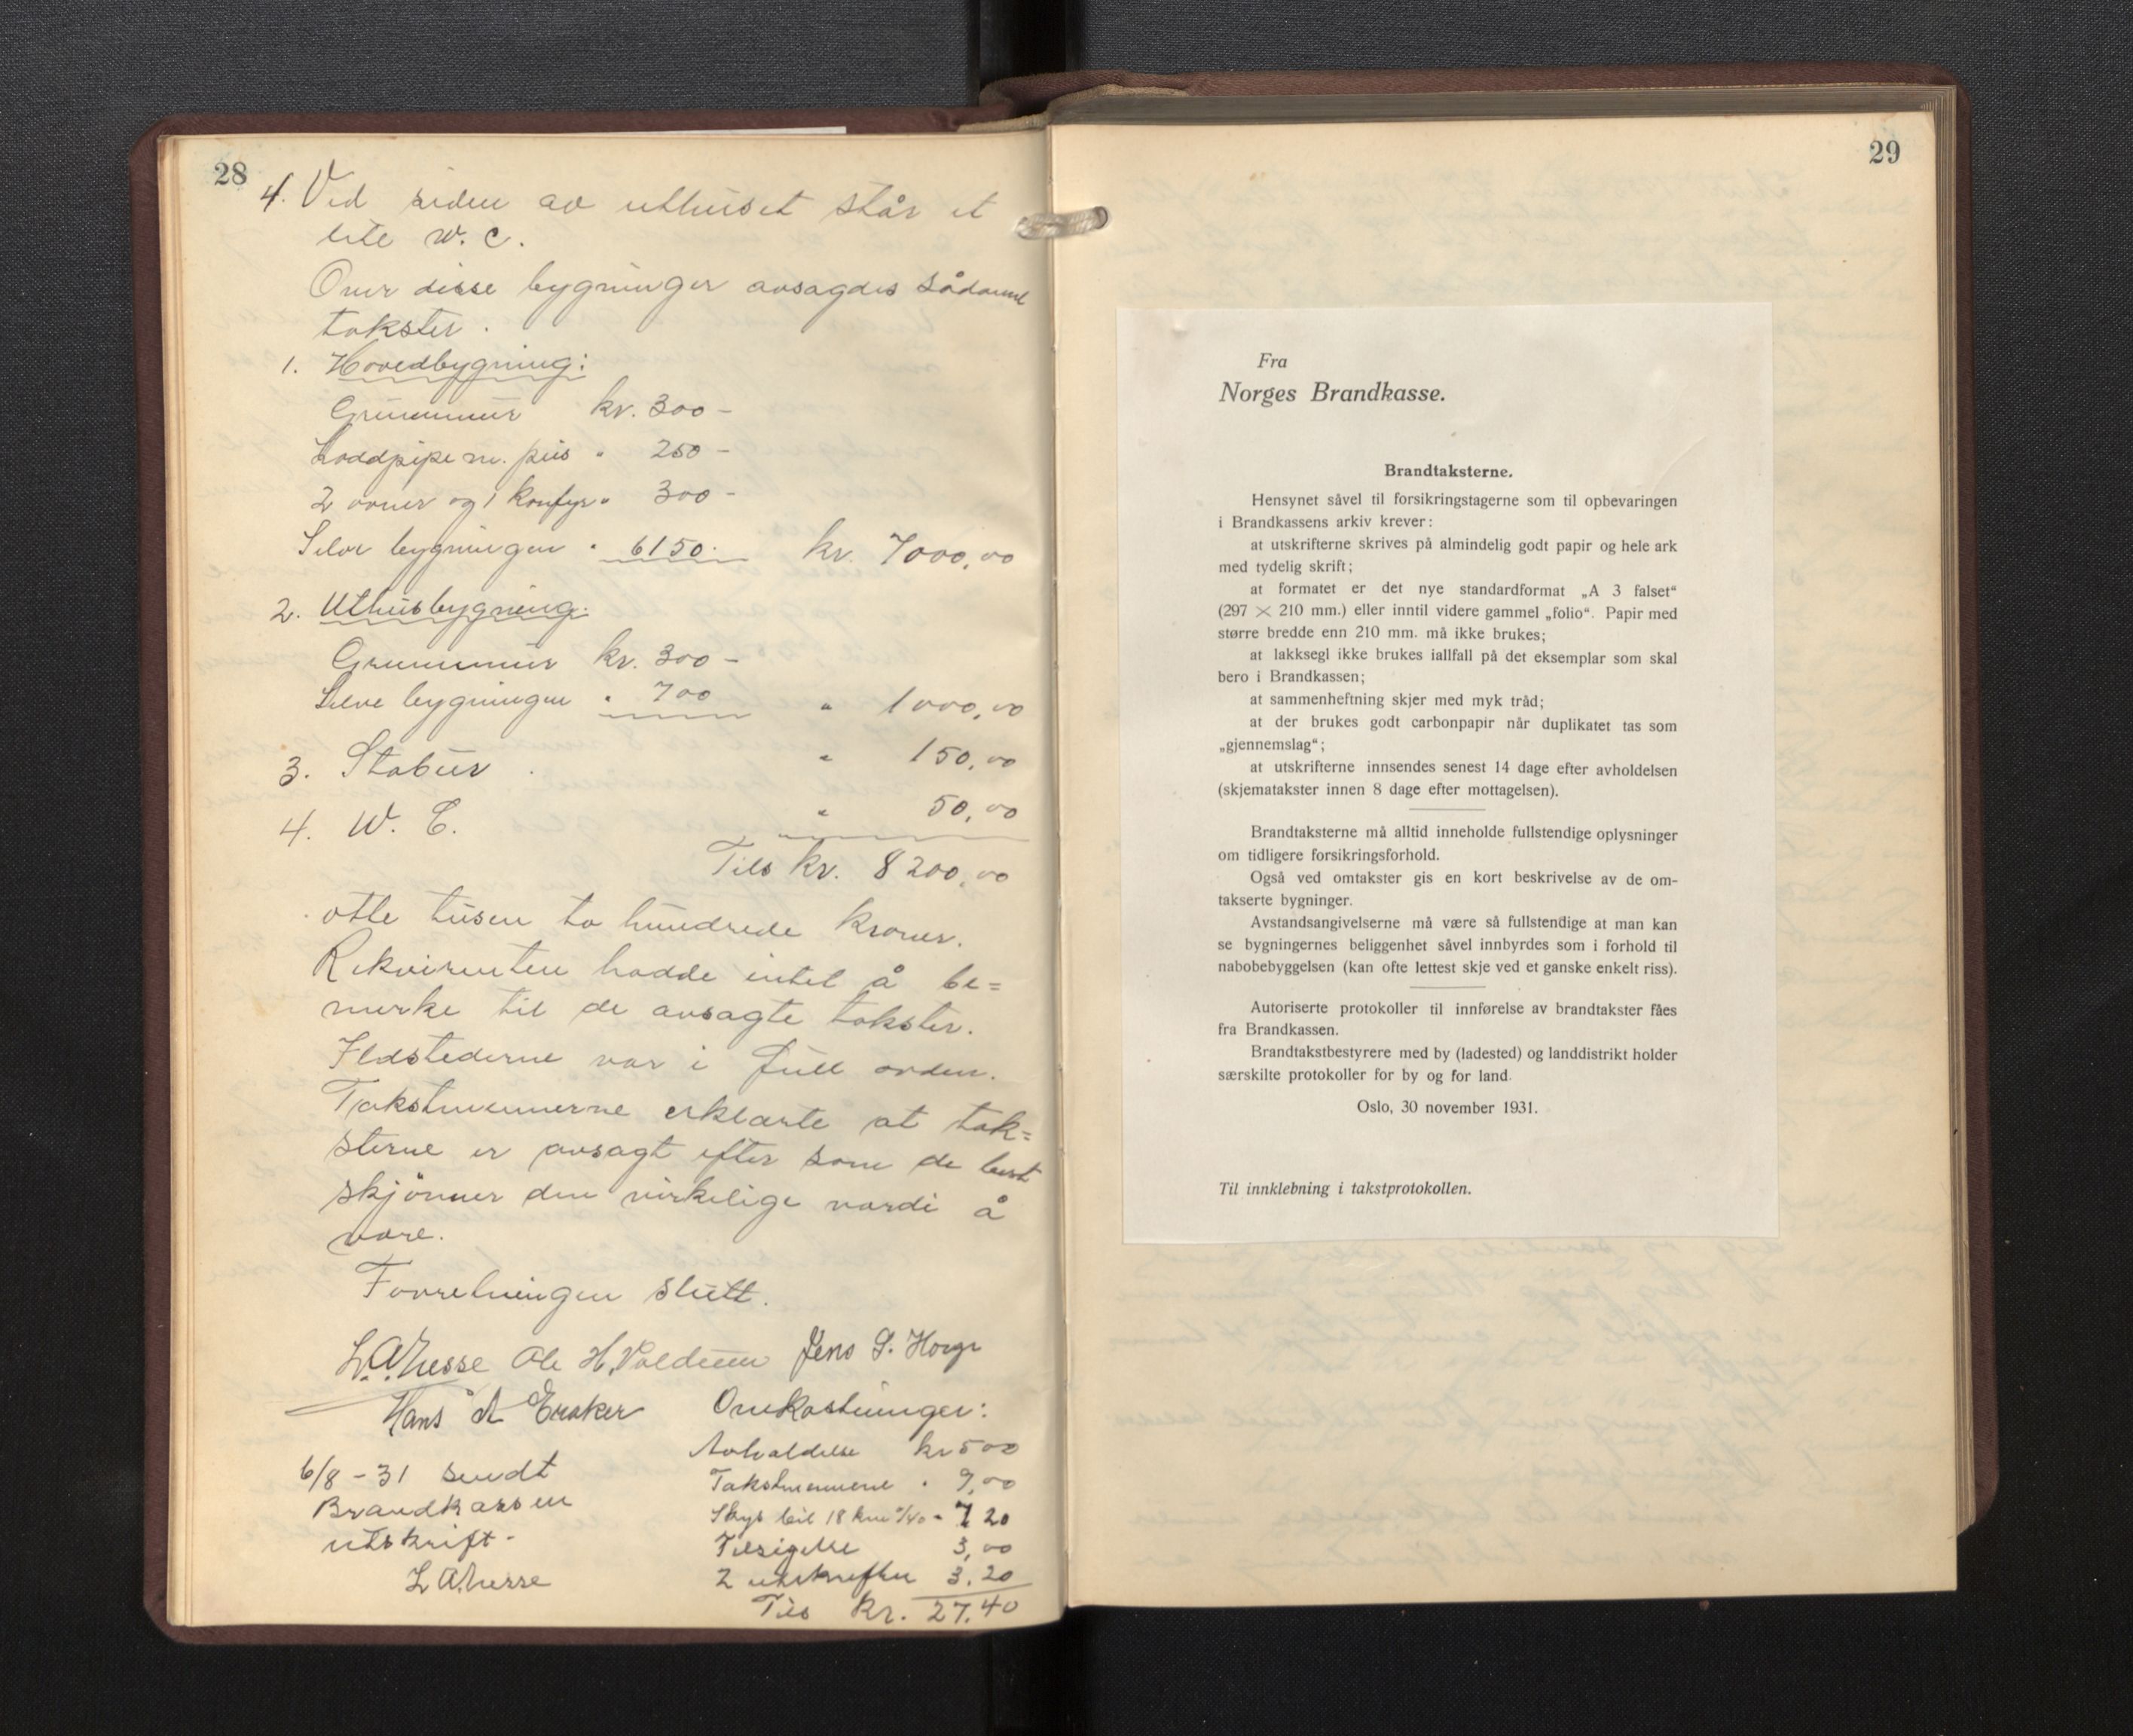 28
4. Ved siden av uthuset står et
lite W. C.
Over disse bygninger avsagdes sådanne
takster.
1. Hovedbygning:
Grunnmur kr. 300 –
Loddpipe m. peis " 250 –
2 ovner og 1 komfyr " 300 –
Selve bygningen " 6150. kr. 7000,00
2. Uthusbygning.
Grunnmur kr. 300 –
Selve bygningen " 700 " 1000,00
3. Stabur. " 150,00
4. W. C. " 50,00
Tils kr. 8200,00
otte tusen to hundrede kroner.
Rekvirenten hadde intet å be=
merke til de avsagte takster.
Ildstederne var i full orden.
Takstmennerne erklærte at tak=
sterne er avsagt efter som de best
skjønner den virkelige verdi å
være.
Forretningen slutt.
L. A. Ole H. Jens S.
Hans A Eraker Omkostninger:
Avholdelse kr 5 00
Takstmennene " 9,00
6/8 – 31 sendt
Skyss bil 18 km /40 " 7 20
Brandkassen
Tilsigelse 3,00
utskrift –
2 utskrifter 3.20
L A
Tils kr. 27.40
29
Fra
Norges Brandkasse.
Brandtaksterne.
Hensynet såvel til forsikringstagerne som til opbevaringen
i Brandkassens arkiv krever:
at utskrifterne skrives på almindelig godt papir og hele ark
med tydelig skrift;
at formatet er det nye standardformat „A 3 falset“
(297 × 210 mm.) eller inntil videre gammel „folio“. Papir med
større bredde enn 210 mm. må ikke brukes;
at lakksegl ikke brukes iallfall på det eksemplar som skal
bero i Brandkassen;
at sammenheftning skjer med myk tråd;
at der brukes godt carbonpapir når duplikatet tas som
„gjennemslag“;
at utskrifterne innsendes senest 14 dage efter avholdelsen
(skjematakster innen 8 dage efter mottagelsen).
Brandtaksterne må alltid inneholde fullstendige oplysninger
om tidligere forsikringsforhold.
Også ved omtakster gis en kort beskrivelse av de om-
takserte bygninger.
Avstandsangivelserne må være så fullstendige at man kan
se bygningernes beliggenhet såvel innbyrdes som i forhold til
nabobebyggelsen (kan ofte lettest skje ved et ganske enkelt riss).
Autoriserte protokoller til innførelse av brandtakster fåes
fra Brandkassen.
Brandtakstbestyrere med by (ladested) og landdistrikt holder
særskilte protokoller for by og for land.
Oslo, 30 november 1931.
Til innklebning i takstprotokollen.